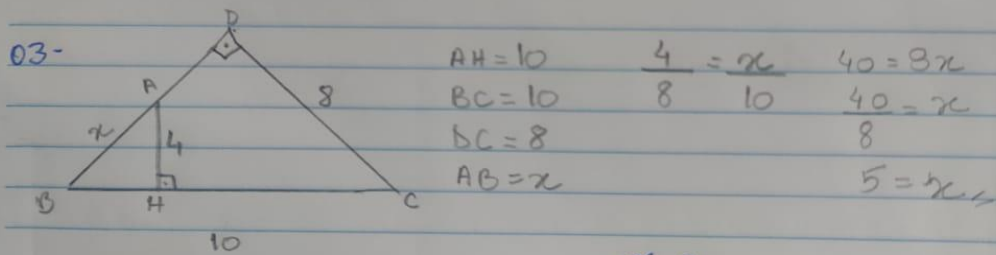 03-
D
A
8
x
4
B
H
C
10
AH = 10
BC = 10
DC = 8
AB = x
4/8 = x/10
40 = 8x
40/8 = x
5 = x